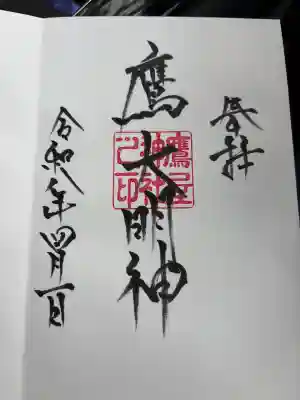 奉拝
鷹大明神
鷹屋神社之印
令和年四月一日